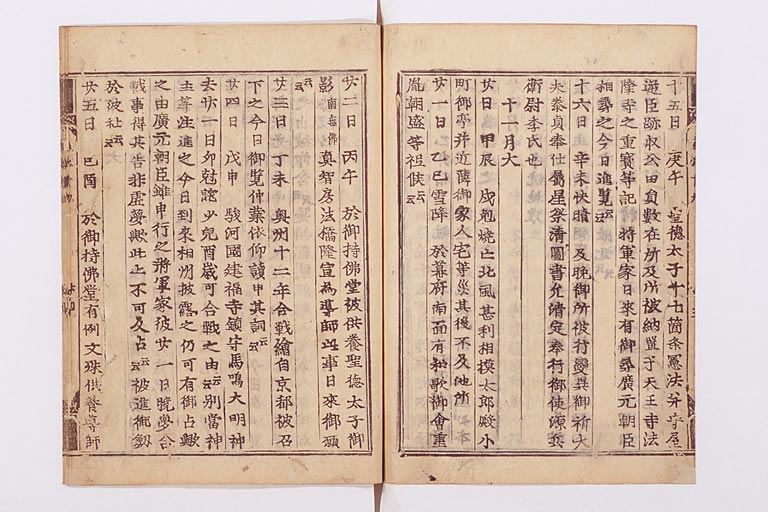 十五日 庚午 聖徳太子十七箇条憲法并守屋
逆臣跡収公田員数在所及所被納置于天王寺法
隆寺之重寳等記 将軍家日来有御尋廣元朝臣
相尋之今日進覧云云
十六日 辛未 快晴 及晩御所被行變異御祈大
夫泰貞奉仕属星祭清圖書允清定奉行御使源兵
衛尉李氏也
十一月大
廿日 甲辰 戌剋焼亡北風甚利相摸太郎殿小
町御亭并近隣御家人宅等災其後不及他所
廿一日 乙巳 雪降 於幕府南面有和歌御會重
胤朝盛等祗候云云
廿二日 丙午 於御持佛堂被供養聖徳太子御
影南無佛真智房法橋隆宣為導師此事日来御願
云云
廿三日 丁未 奥州十二年合戦繪自京都被召
下之今日御覧仲業依仰讀申其詞云云
廿四日 戊申 駿河國建福寺鎮守馬鳴大明神
去廿一日卯剋詫少兒酉歳可合戦之由云云別當神
主等注進之今日到来相州披露之仍可有御占歟
之由廣元朝臣雖申行之将軍家彼廿一日暁夢合
戦事得其告非虚夢歟此上不可及占云云被進御劔
於彼社云云
廿五日 己酉 於御持佛堂有例文殊供養導師